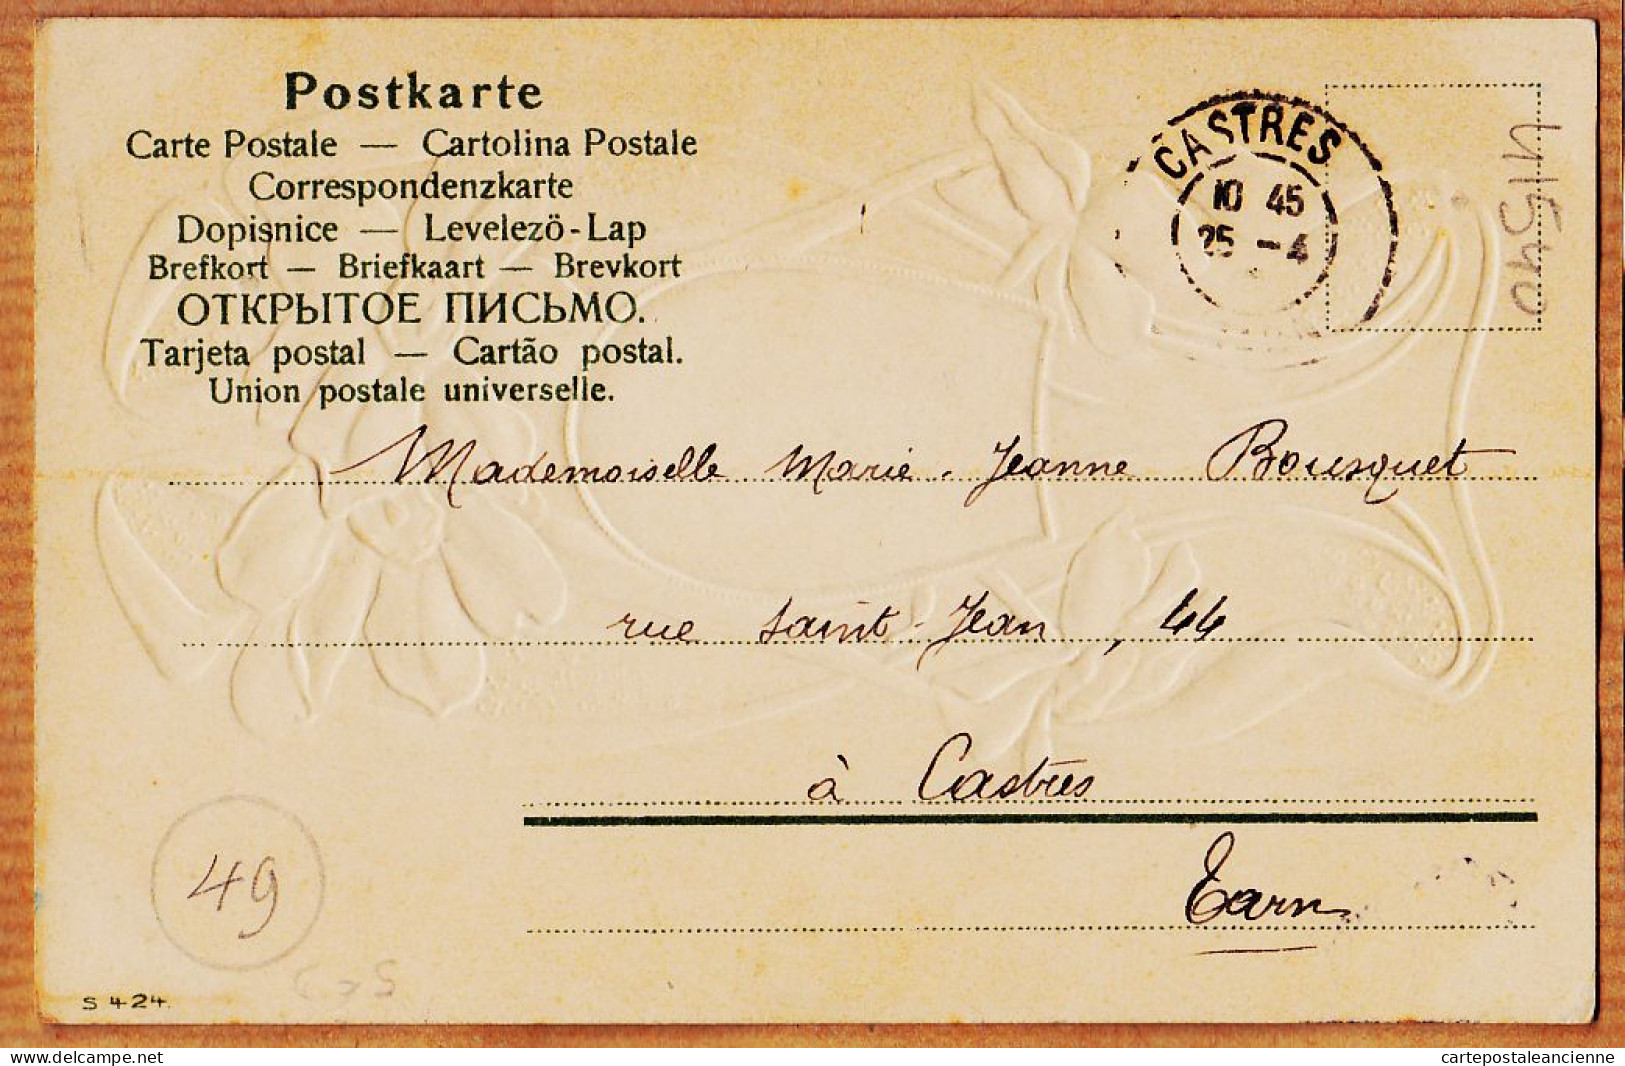 Postkarte
Carte Postale — Cartolina Postale
Correspondenzkarte
Dopisnice — Levelezö-Lap
Brefkort — Briefkaart — Brevkort
ОТКРЫТОЕ ПИСЬМО.
Tarjeta postal — Cartão postal.
Union postale universelle.
CASTRES
10 45
25 - 4
41540
Mademoiselle Marie-Jeanne Bousquet
rue Saint-Jean, 44
à Castres
Tarn
49
S 424.
delcampe.net
cartepostaleancienne